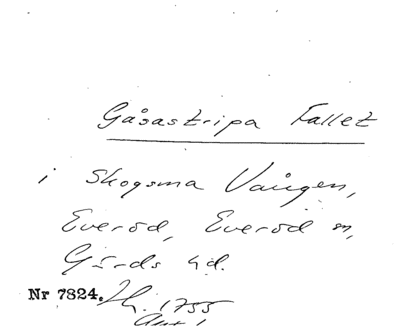 Gåsastripa Fallet
i Skogsma Vången,
Everöd, Everöd sn,
Gärds hd.
Nr 7824. Lh. 1755
Akt 1